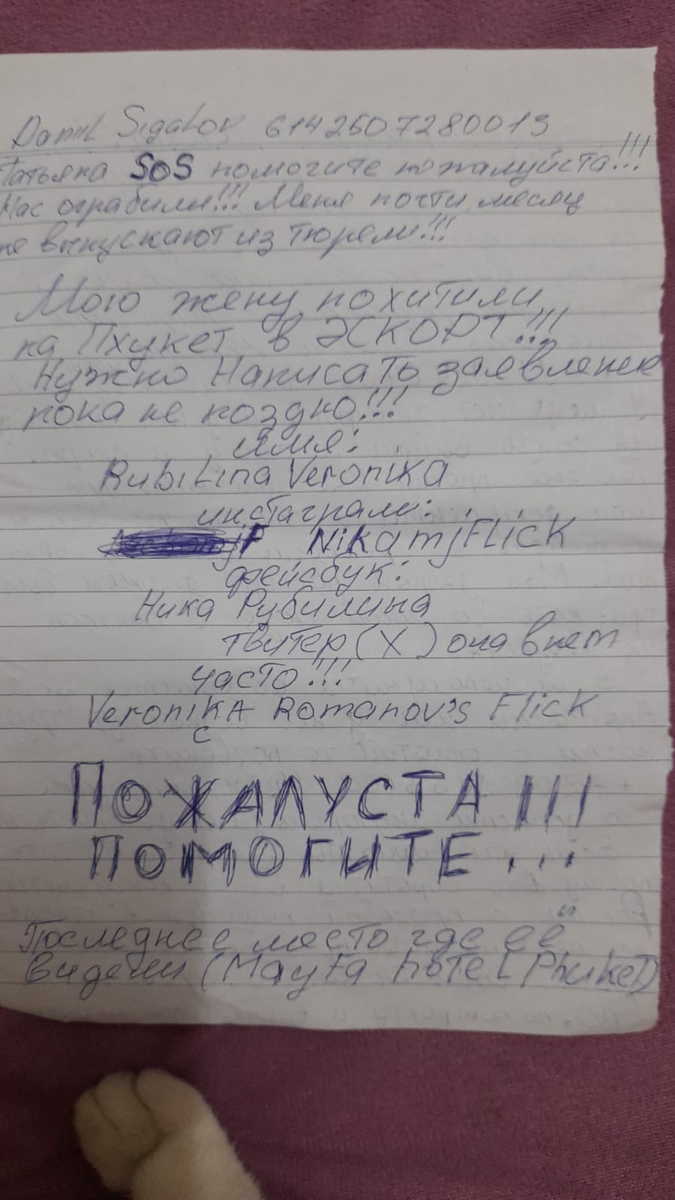 Danil Sigalov 6142507280019
Татьяна SOS помогите пожалуйста!!!
Нас ограбили!!! Меня почти месяц
не выпускают из тюрьмы!!!
Мою жену похитили
на Пхукет в ЭСКОРТ!!!
Нужно Написать заявление
пока не поздно!!!
имя:
RubiLina Veronika
инстаграм:
NikamjFLick
фейсбук:
Ника Рубилина
твитер (X) она в нет
часто!!!
VeroniKA Romanov's Flick
c
ПОЖАЛУСТА!!!
ПОМОГИТЕ...
Последнее место где её
видели (Mayta hotel Phuket)